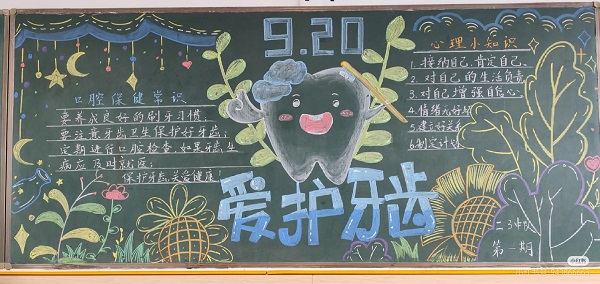 9.20
口腔保健常识
要养成良好的刷牙习惯、
要注意牙齿卫生保护好牙齿、
定期进行口腔检查、如果牙齿生
病应及时就医。
保护牙齿,关爱健康!
爱护牙齿
心理小知识
1.接纳自己,肯定自己、
2.对自己的生活负责
3.对自己增强自信心、
4.情绪
5.建立好关系
6.制定计划
二3中队
第一期
小红书